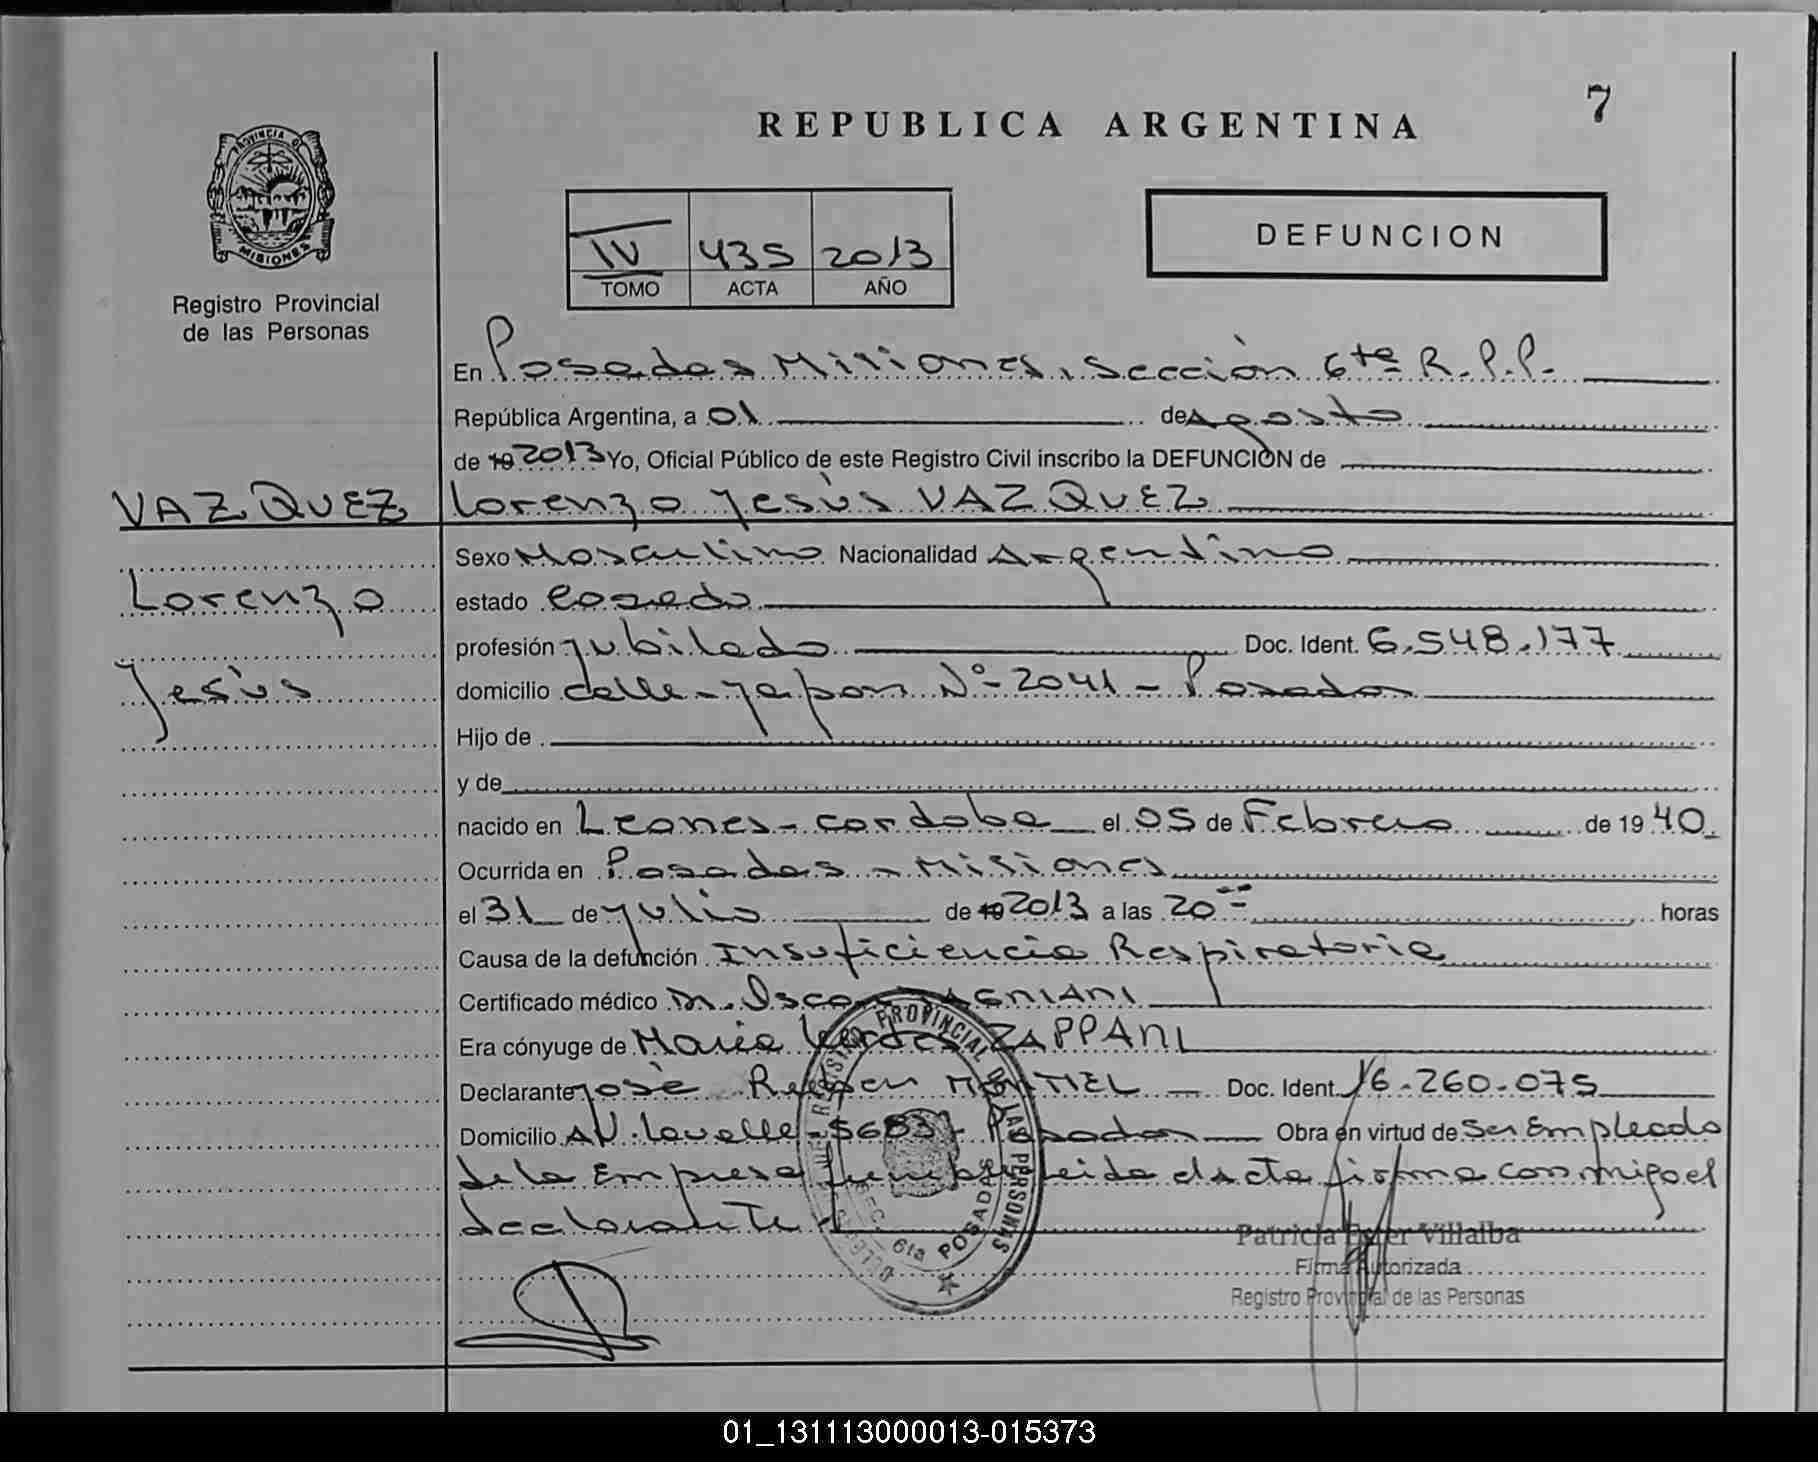 7
REPUBLICA ARGENTINA
PROVINCIA DE
MISIONES
Registro Provincial
de las Personas
IV 435 2013
TOMO ACTA AÑO
DEFUNCION
En Posadas Misiones, Sección 6ta R.P.P.
República Argentina, a 01 de Agosto
de 19 2013 Yo, Oficial Público de este Registro Civil inscribo la DEFUNCIÓN de
VAZQUEZ
Lorenzo Jesús VAZQUEZ
Lorenzo
Jesús
Sexo Masculino Nacionalidad Argentino
estado Casado
profesión Jubilado Doc. Ident. 6.548.177
domicilio Calle - Japon Nº 2041 - Posadas
Hijo de
y de
nacido en Leones - Cordoba el 05 de Febrero de 19 40
Ocurrida en Posadas - Misiones
el 31 de Julio de 19 2013 a las 20 horas
Causa de la defunción Insuficiencia Respiratoria
Certificado médico Dr. Oscar
Era cónyuge de María ZAPPANI
Declarante José Ruben MONTIEL Doc. Ident. 16.260.075
Domicilio AV. Lavalle - 5683 - Posadas Obra en virtud de Ser Empleado
de la Empresa leida el acta firma conmigo el
declarante
REGISTRO PROVINCIAL DE LAS PERSONAS
SEC. 6ta POSADAS
Patricia Ester Villalba
Firma Autorizada
Registro Provincial de las Personas
01_131113000013-015373